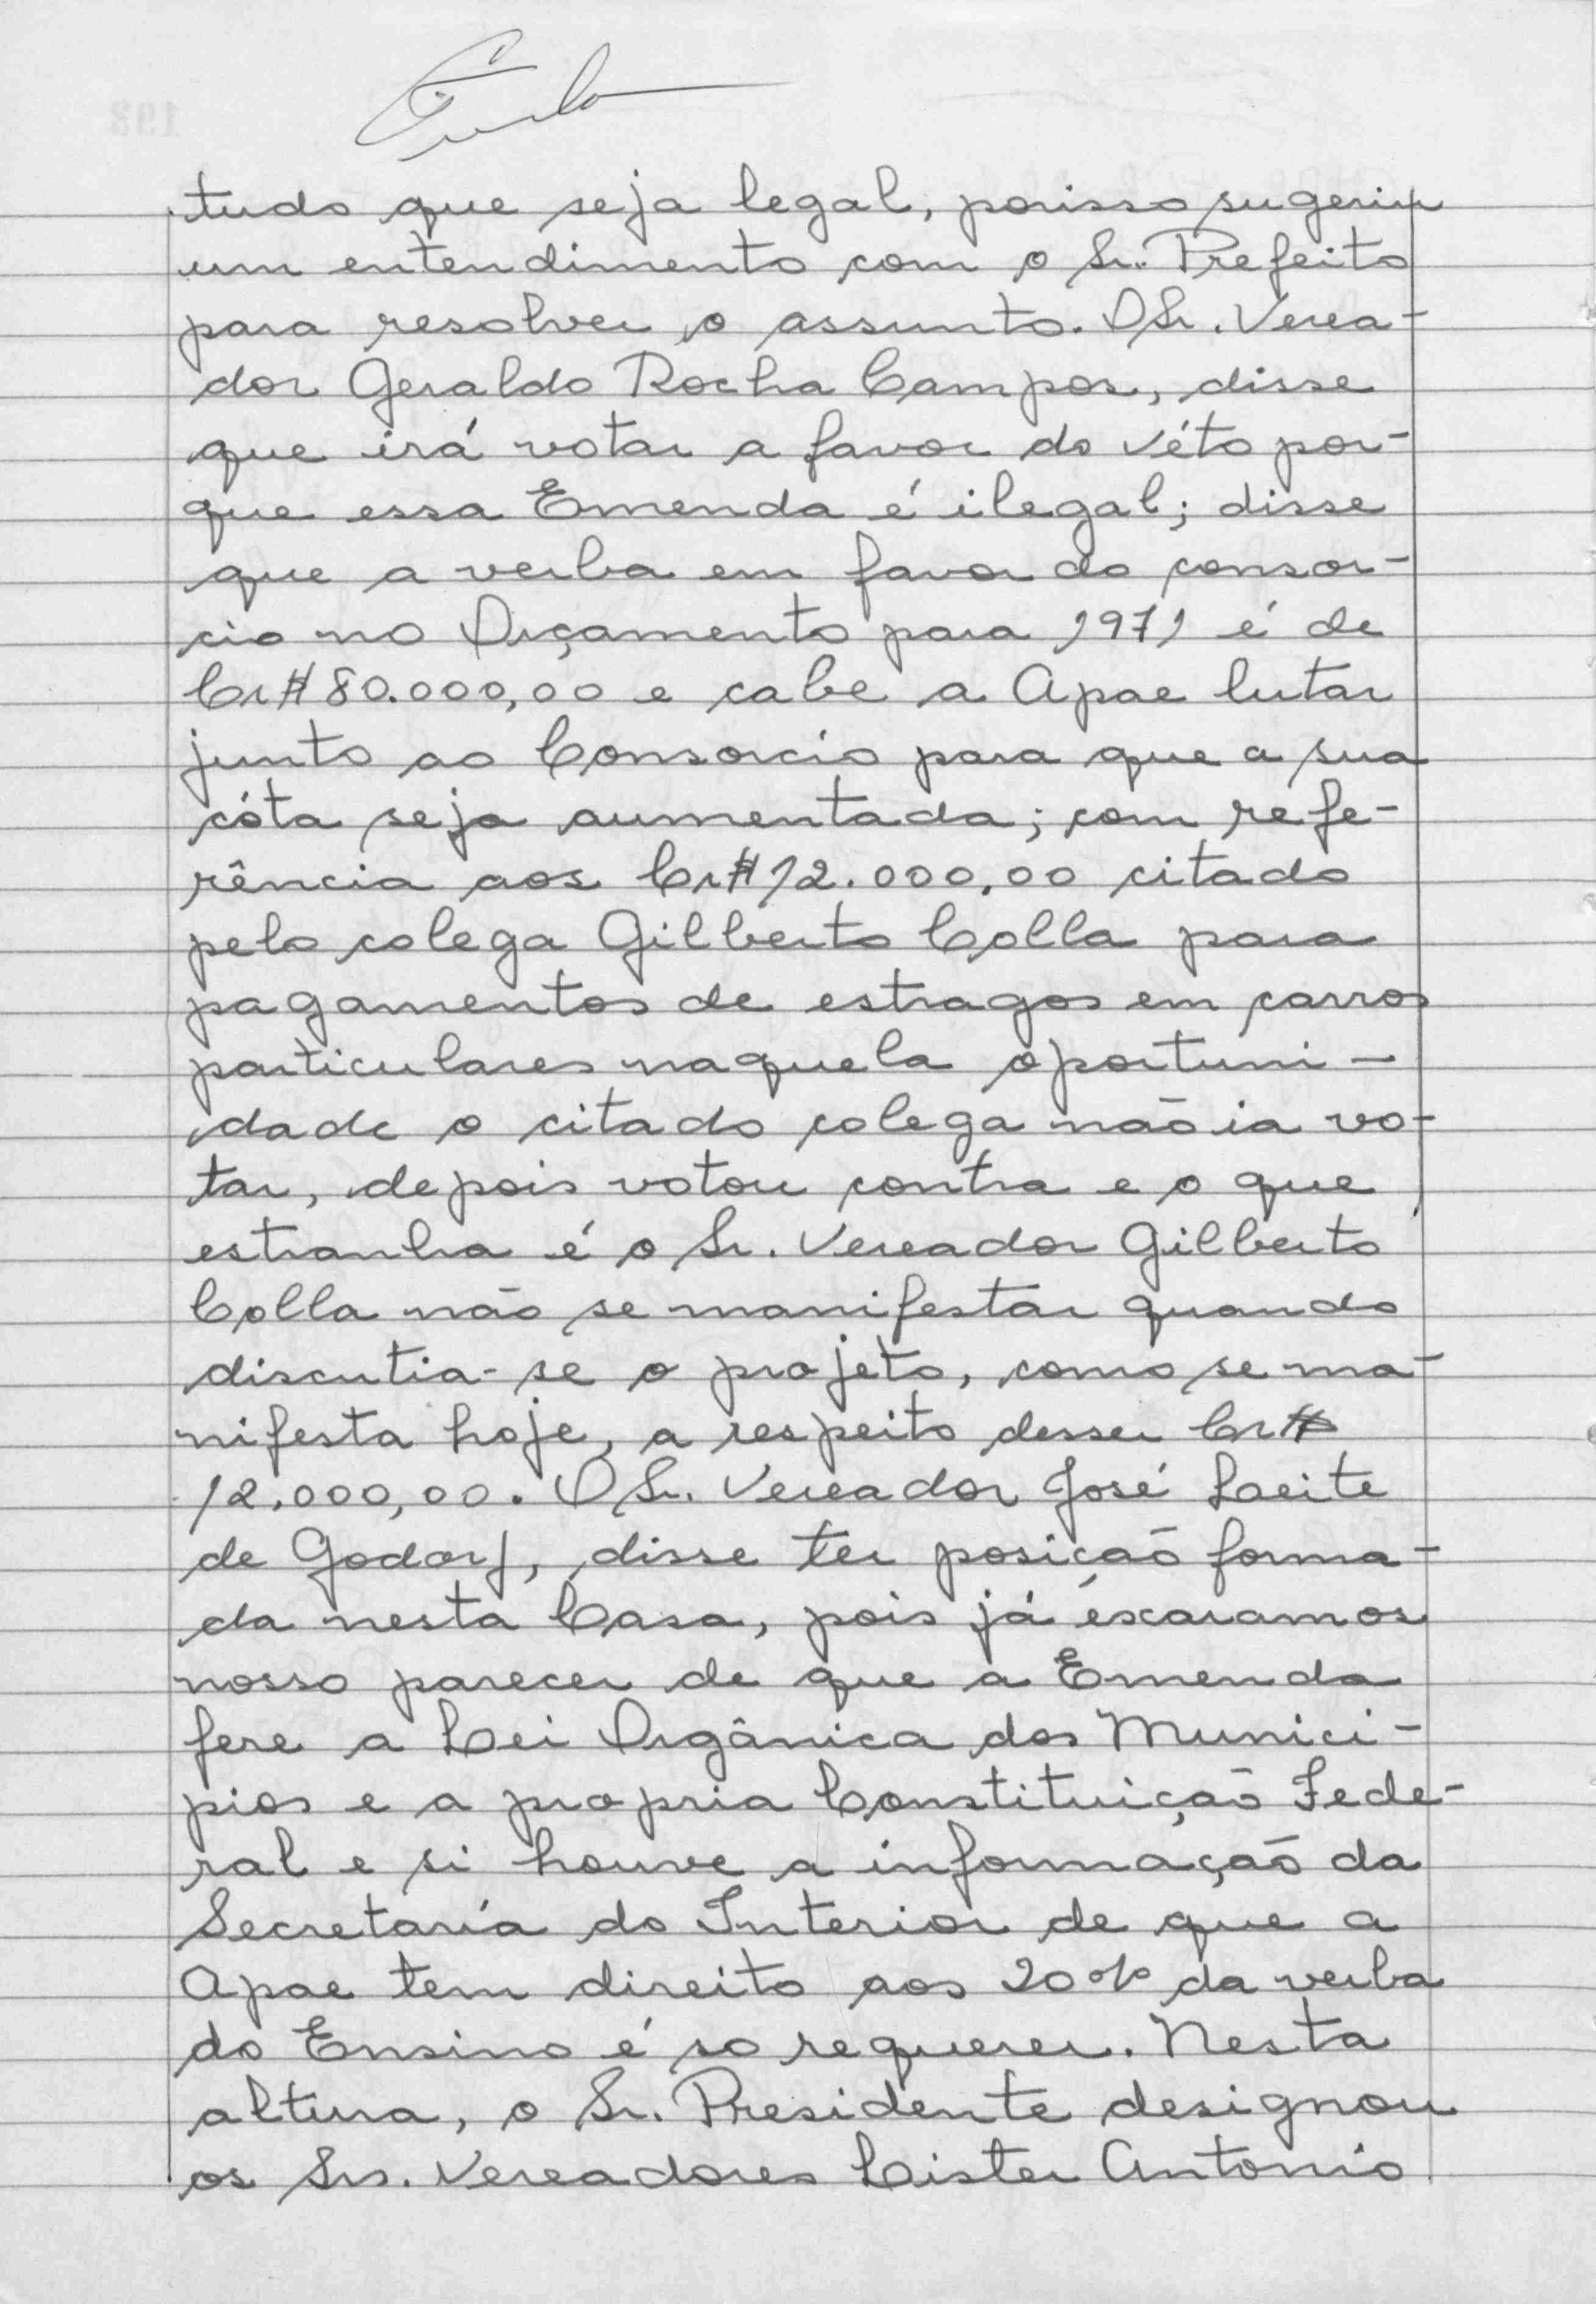 tudo que seja legal, porisso sugeriu
um entendimento com o Sr. Prefeito
para resolver o assunto. O Sr. Verea-
dor Geraldo Rocha Campos, disse
que irá votar a favor do véto por-
que essa Emenda é ilegal; disse
que a verba em favor do consor-
cio no Orçamento para 1971 é de
Cr$ 80.000,00 e cabe a Apae lutar
junto ao Consorcio para que a sua
cóta seja aumentada; com refe-
rência aos Cr$ 12.000,00 citado
pelo colega Gilberto Colla para
pagamentos de estragos em carros
particulares naquela oportuni-
dade o citado colega não ia vo-
tar, depois votou contra e o que
estranha é o Sr. Vereador Gilberto
Colla não se manifestar quando
discutia-se o projeto, como se ma-
nifesta hoje, a respeito desses Cr$
12.000,00. O Sr. Vereador José Leite
de Godoy, disse ter posição forma-
da nesta Casa, pois já éxaramos
nosso parecer de que a Emenda
fere a Lei Orgânica dos Munici-
pios e a propria Constituição Fede-
ral e si houve a informação da
Secretaría do Interior de que a
Apae tem direito aos 20% da verba
do Ensino é so requerer. Nesta
altura, o Sr. Presidente designou
os Srs. Vereadores Lister Antonio